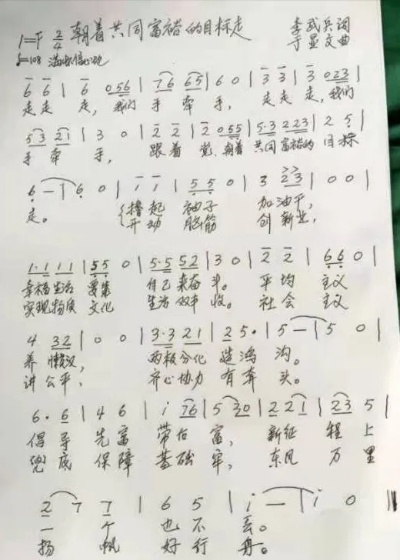 1=F 2/4 朝着共同富裕的目标走 李武兵词
♩=108 满怀信心地 于显文曲
6 6 | 6 056 | 76 65 | 6 0 | 3 3 | 3 023 |
走走 走,我们 手 牵 手, 走走 走,我们
53 21 | 3 0 | 2 2 | 2 055 | 5·3 223 | 2 5 |
手 牵 手, 跟着 党,朝着 共同富裕的 目标
6 - | 6 0 | i i | 5 5 0 | 3 23 | 0 0 |
走。 撸起 袖子 加油干,
开动 脑筋 创新业,
1·1 11 | 55 0 | 5·5 52 | 3 0 | 2 2 | 66 0 |
幸福生活 要靠 自己来奋 斗。 平均 主义
实现物质 文化 生活双丰 收。 社会 主义
4 32 | 0 0 | 3·3 21 | 2 5· | 5 - | 5 0 |
养 懒汉, 两极分化 造鸿 沟。
讲 公平, 齐心协力 有奔 头。
6· 6 | 4 6 | i 76 | 5 30 | 2 21 | 23 5 |
倡导 先富 带后 富, 新征 程 上
兜底 保障 基础 牢, 东风 万 里
2 7 7 | 6 5 | i - | i 0 ‖
一 个 也不 丢。
扬 帆 好行 舟。